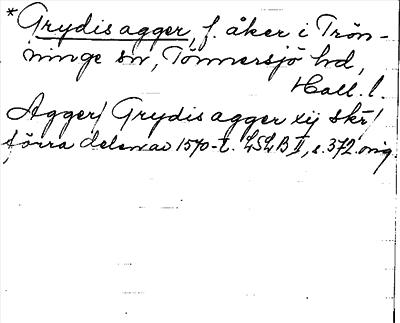 *Grydis agger, f. åker i Trön-
ninge sn, Tönnersjö hd,
Hall. l.
Agger/ Grydis agger xij skr/
förra delen av 1570-t. LSLB II, s. 372. orig.